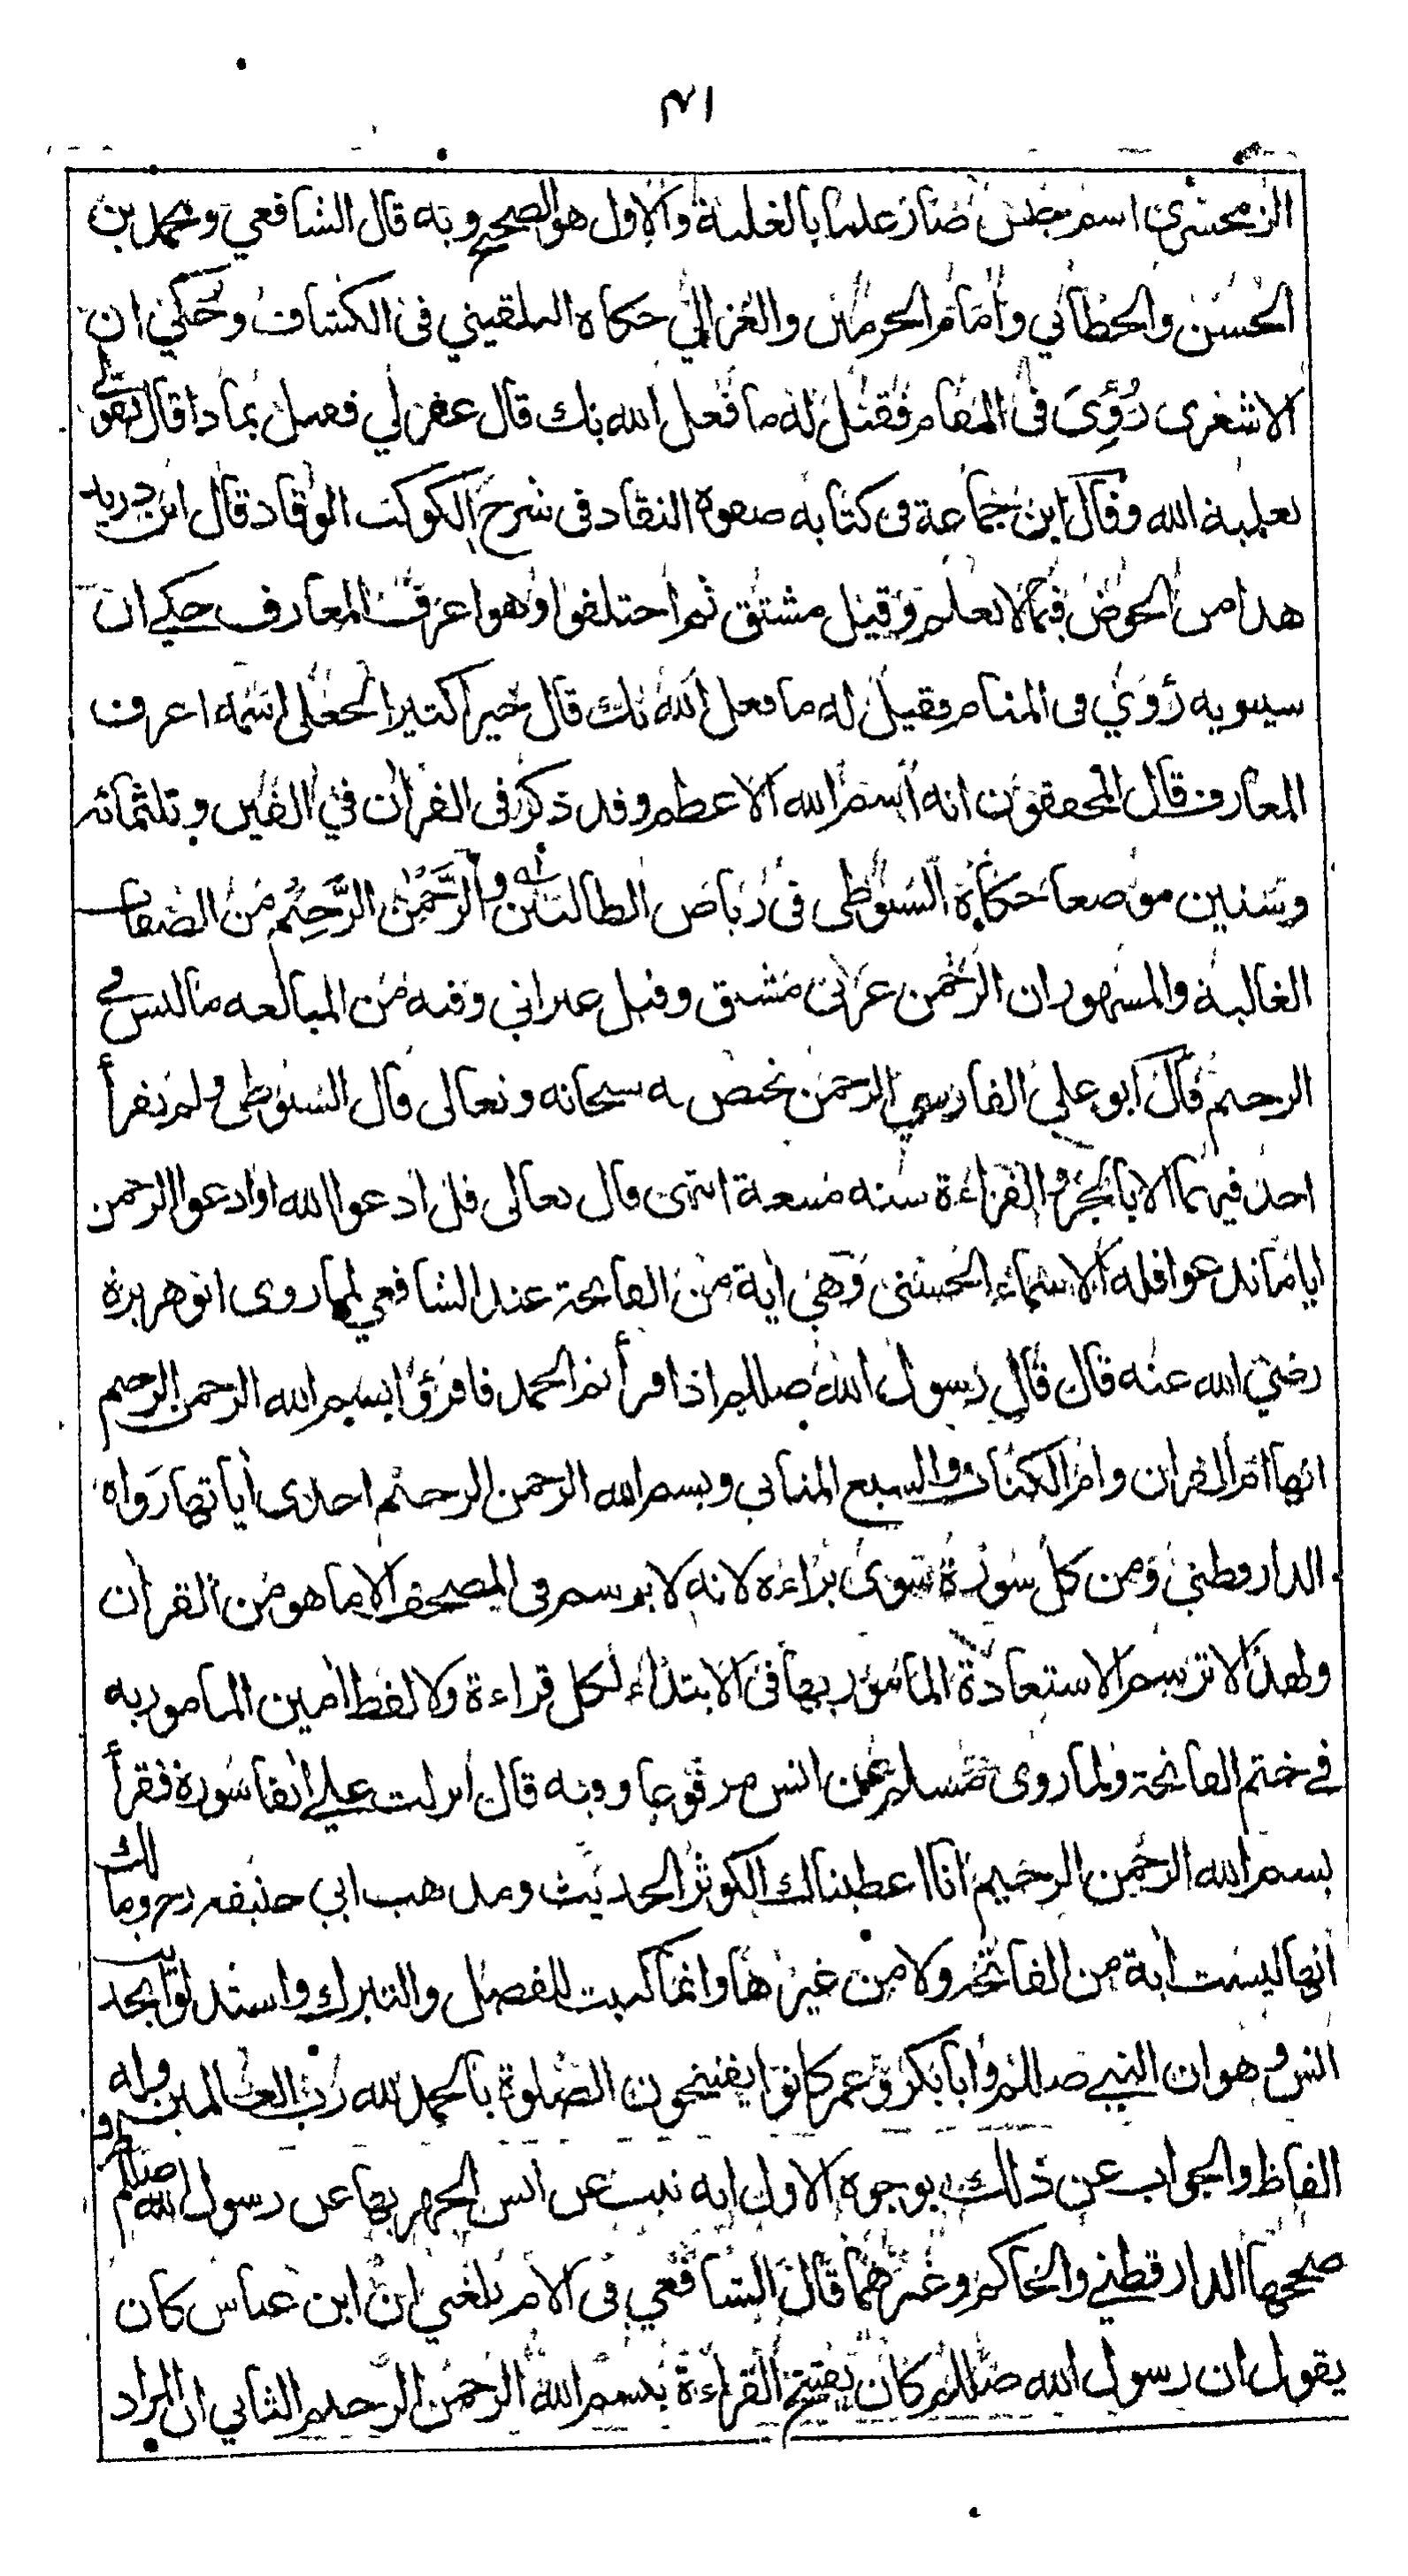 ٣١
الزمخشري اسم جنس صار علما بالغلبة والاول هو الصحيح وبه قال الشافعي ومحمد بن
الحسن والخطابي وامام الحرمين والغزالي حكاه البلقيني في الكشاف وحكي ان
الاشعري رؤي في المنام فقيل له ما فعل الله بك قال غفر لي فقيل بماذا قال بقولي
بعلمية الله وقال ابن جماعة في كتابه صفوة النقاد في شرح الكوكب الوقاد قال ابن دريد
هذا من الخوض فيما لا يعلم وقيل مشتق ثم اختلفوا وهو اعرف المعارف حكي ان
سيبويه رؤي في المنام فقيل له ما فعل الله بك قال خيرا كثيرا لجعلي اسمه اعرف
المعارف قال المحققون انه اسم الله الاعظم وقد ذكر في القران في الفين وثلثمائه
وستين موضعا حكاه السيوطي في رياض الطالبين والرحمن الرحيم من الصفات
الغالبة والمشهور ان الرحمن عربي مشتق وقيل عبراني وفيه من المبالغه ما ليس في
الرحيم قال ابو علي الفارسي الرحمن يختص به سبحانه وتعالى قال السيوطي ولم يقرأ
احد فيهما الا بالجر والقراءة سنه متبعة انتهى قال تعالى قل ادعوا الله او ادعوا الرحمن
اياما تدعوا فله الاسماء الحسنى وهي اية من الفاتحة عند الشافعي لما روى ابو هريرة
رضي الله عنه قال قال رسول الله صللم اذا قرأتم الحمد فاقرؤا بسم الله الرحمن الرحيم
انها ام القران وام الكتاب والسبع المثاني وبسم الله الرحمن الرحيم احدى اياتها رواه
الدارقطني ومن كل سورة سوى براءة لانه لا يرسم في المصحف الا ما هو من القران
ولهذا لا ترسم الاستعاذة المامور بها في الابتداء لكل قراءة ولا لفظ امين المامور به
في ختم الفاتحة ولما روى مسلم عن انس مرفوعا وفيه قال انزلت علي انفا سورة فقرأ
بسم الله الرحمن الرحيم انا اعطيناك الكوثر الحديث ومذهب ابي حنيفه رح ومالك
انها ليست اية من الفاتحة ولا من غيرها وانما كتبت للفصل والتبرك واستدلوا بحديث
انس وهو ان النبي صللم وابا بكر وعمر كانوا يفتتحون الصلوة بالحمد لله رب العالمين وله
الفاظ والجواب عن ذلك بوجوه الاول انه ثبت عن انس الجهر بها عن رسول الله صللم و
صححها الدارقطني والحاكم وغيرهما قال الشافعي في الام بلغني ان ابن عباس كان
يقول ان رسول الله صللم كان يفتتح القراءة ببسم الله الرحمن الرحيم الثاني ان المراد